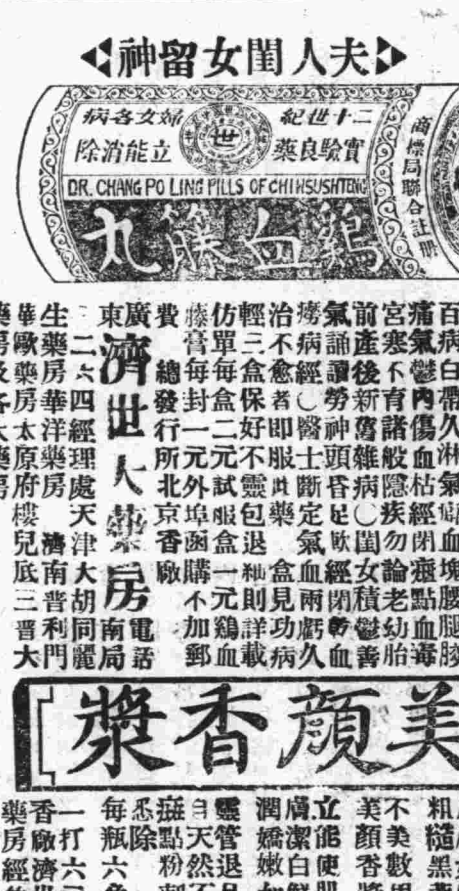 夫人閨女留神
二十世紀
實驗良藥
世
婦女各病
立能消除
商標局聯合註册
DR. CHANG PO LING PILLS OF CHIHSUSHTENG
鷄血籐丸
百病白帶久淋氣痞血塊腰腿
痛氣鬱內傷血枯經閉癍點血毒
宮寒不育諸般隱疾勿論老幼胎
前產後新舊雜病〇閨女積鬱善
氣誦讀勞神頭昏足歐經閉乾血
癆病經〇醫士斷定氣血兩虧久
治不愈者即服此藥一盒見功病
輕三盒保好不靈包退細則詳載
仿單每盒二元試服盒一元鷄血
籐膏每封一元外埠函購不加郵
費 總發行所北京香廠
廣東 濟世大藥房 電話南局
二六四經理處天津大胡同麗
生藥房華洋藥房 濟南普利門
華歐藥房太原府樓兒底三晉大
藥房及各大藥房
美顏香漿
粗糙黑
不美數
美顏香
立能使
膚潔白
潤嬌嫩
靈管退
自天然不
癍點粉刺
悉除
每瓶六角
一打六元
香廠濟世
藥房經